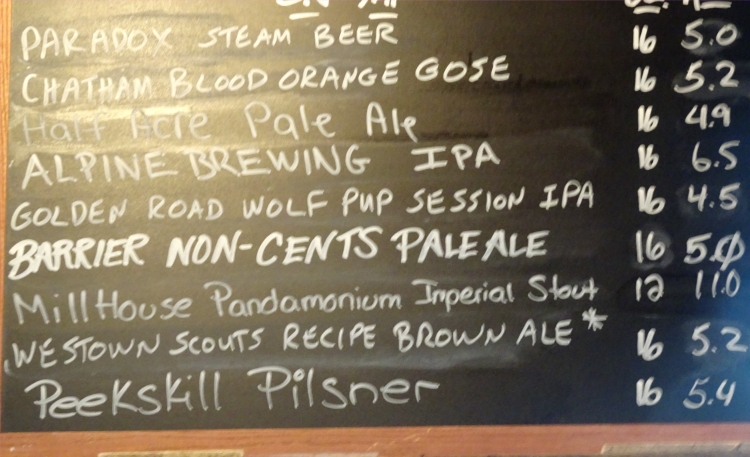 PARADOX STEAM BEER 16 5.0
CHATHAM BLOOD ORANGE GOSE 16 5.2
Half Acre Pale Ale 16 4.9
ALPINE BREWING IPA 16 6.5
GOLDEN ROAD WOLF PUP SESSION IPA 16 4.5
BARRIER NON-CENTS PALE ALE 16 5.0
MillHouse Pandamonium Imperial Stout 12 11.0
WESTOWN SCOUTS RECIPE BROWN ALE* 16 5.2
Peekskill Pilsner 16 5.4